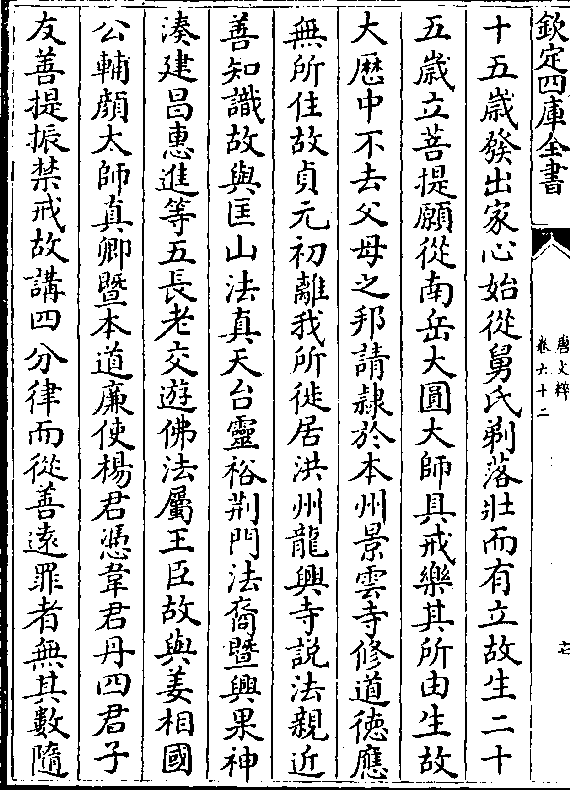 欽定四庫全書
唐文粹
卷六十二
十五歲發出家心始從舅氏剃落壯而有立故生二十
五歲立菩提願從南岳大圓大師具戒樂其所由生故
大厯中不去父母之邦請隷於本州景雲寺修道徳應
無所住故貞元初離我所徙居洪州龍興寺説法親近
善知識故與匡山法真天台靈裕荆門法裔暨興果神
湊建昌惠進等五長老交遊佛法屬王臣故與姜相國
公輔顔太師真卿暨本道廉使楊君憑韋君丹四君子
友善提振禁戒故講四分律而從善遠罪者無其數隨